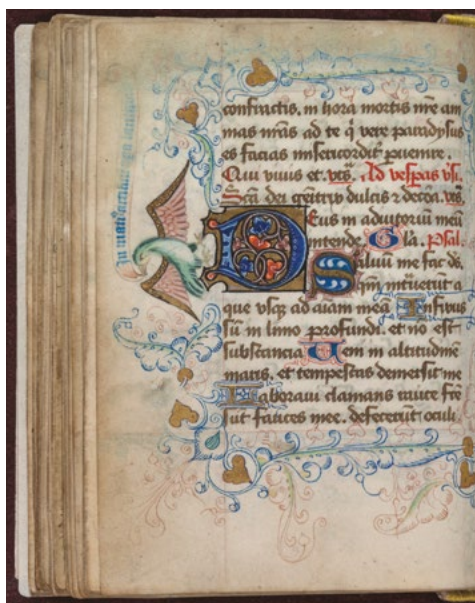 confractis. in hora mortis nre ani
mas nras ad te q vere paradysus
es facias misericordit puenire.
Qui viuis et. vrs. Ad vespas vsi.
Sca dei genitrix dulcis z decora. vrs.
Deus in adiutorium meu
intende. Gla. Psal.
Saluu me fac ds.
qm intrauerut a
que vsq ad aiam mea Infixus
su in limo profundi. et no est
substancia Ueni in altitudine
maris. et tempestas demersit me
Laboraui clamans rauce
sut fauces mee. defecerut oculi